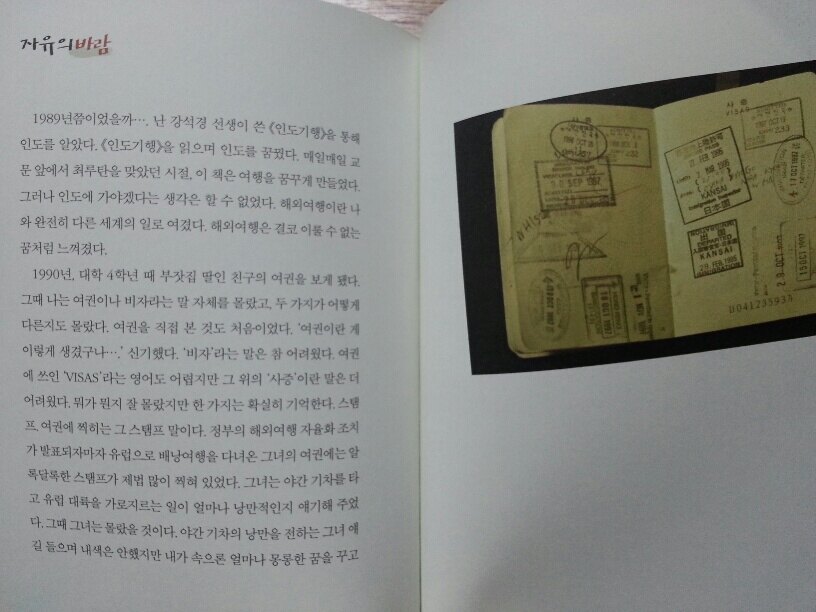 자유의바람
1989년쯤이었을까…. 난 강석경 선생이 쓴 《인도기행》을 통해
인도를 알았다. 《인도기행》을 읽으며 인도를 꿈꿨다. 매일매일 교
문 앞에서 최루탄을 맞았던 시절, 이 책은 여행을 꿈꾸게 만들었다.
그러나 인도에 가야겠다는 생각은 할 수 없었다. 해외여행이란 나
와 완전히 다른 세계의 일로 여겼다. 해외여행은 결코 이룰 수 없는
꿈처럼 느껴졌다.
1990년, 대학 4학년 때 부잣집 딸인 친구의 여권을 보게 됐다.
그때 나는 여권이나 비자라는 말 자체를 몰랐고, 두 가지가 어떻게
다른지도 몰랐다. 여권을 직접 본 것도 처음이었다. '여권이란 게
이렇게 생겼구나….' 신기했다. '비자'라는 말은 참 어려웠다. 여권
에 쓰인 'VISAS'라는 영어도 어렵지만 그 위의 '사증'이란 말은 더
어려웠다. 뭐가 뭔지 잘 몰랐지만 한 가지는 확실히 기억한다. 스탬
프. 여권에 찍히는 그 스탬프 말이다. 정부의 해외여행 자율화 조치
가 발표되자마자 유럽으로 배낭여행을 다녀온 그녀의 여권에는 알
록달록한 스탬프가 제법 많이 찍혀 있었다. 그녀는 야간 기차를 타
고 유럽 대륙을 가로지르는 일이 얼마나 낭만적인지 얘기해 주었
다. 그때 그녀는 몰랐을 것이다. 야간 기차의 낭만을 전하는 그녀 얘
길 들으며 내색은 안했지만 내가 속으론 얼마나 몽롱한 꿈을 꾸고
사증
사증
VISAS
SEP 1997
KANSAI
日本国
出国
DEPARTED
KANSAI